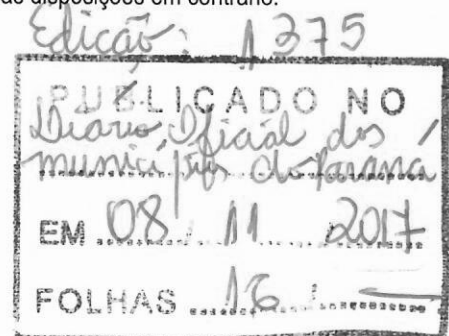 de disposições em contrário.
Edição: 1375
PUBLICADO NO
Diário Oficial dos
municípios do Paraná
EM 08 / 11 2017
FOLHAS 16